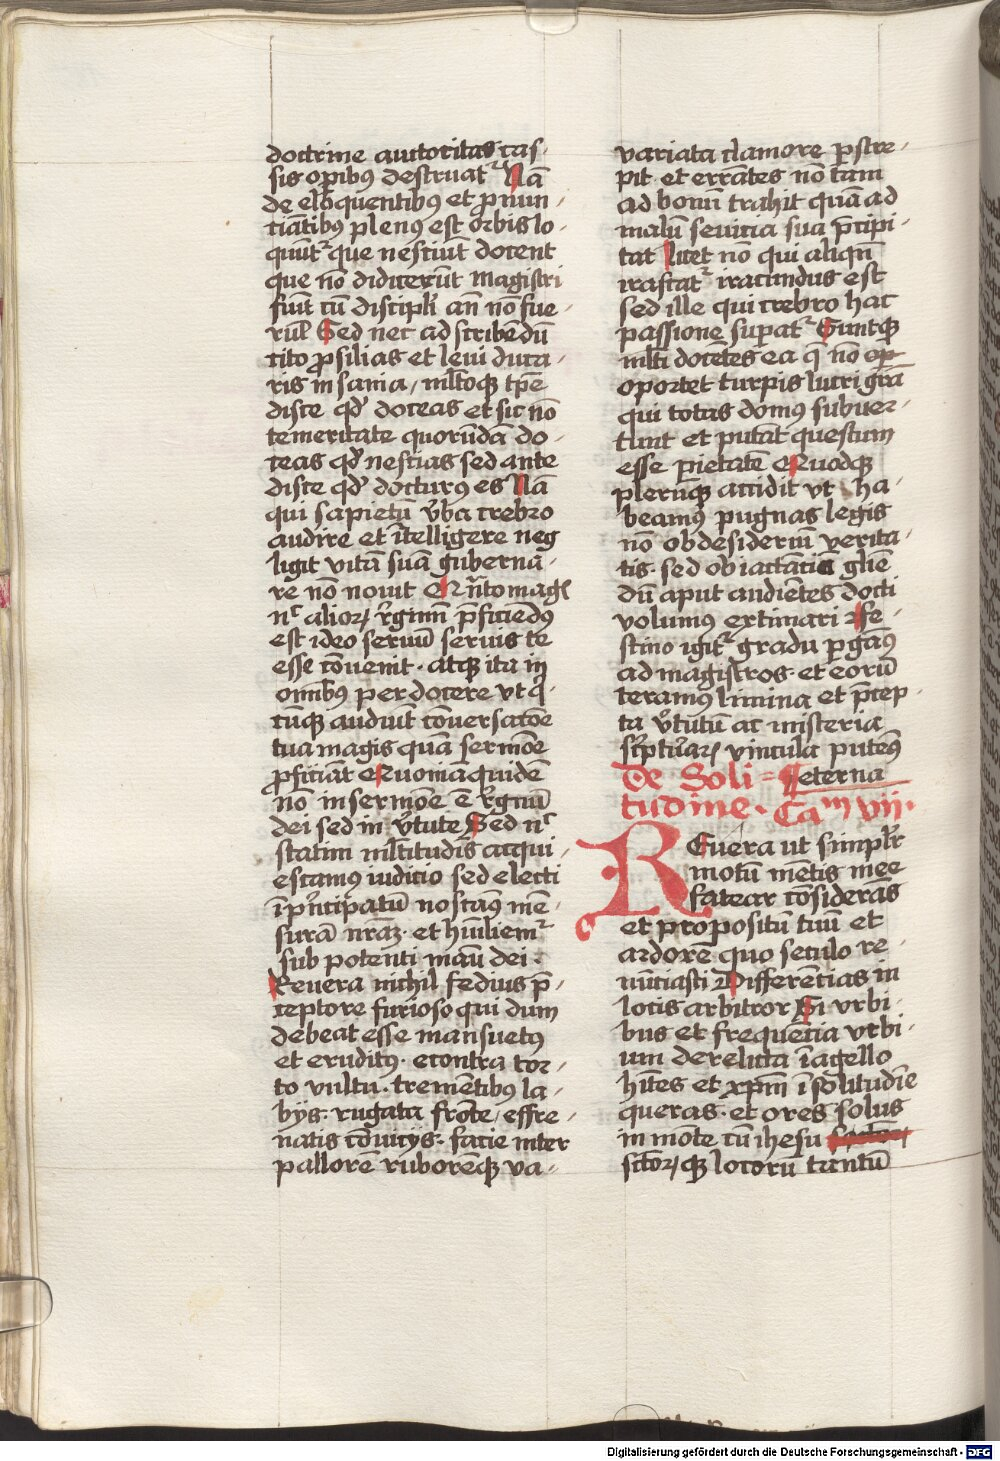 doctrine auctoritas cas-
sis operibus destruatur Nā
de eloquentibus et pronun-
ciātibus plenus est orbis lo-
quūtur que nesciūt docent
que nō didicerūt Magistri
fiūt cū discipli an̄ nō fue-
rūt Sed nec ad scribēdū
cito prosilias et leui duca-
ris insania, mltoque tpe
disce qd doceas et sic nō
temeritate quorūdā do-
ceas qd nescias sed ante
disce qd docturus es Nā
qui sapietū vba crebro
audire et ītelligere neg
ligit vitā suā gubernā-
re nō nouit
est ideo seruū seruis te
esse cōuenit. atque ita in
omībus perdocere vt q
cūque audiūt cōuersacōe
tua magis quā sermōe
proficiāt Quoniā quidē
nō in sermōe ē rgnū
dei sed in vtute Sed nc
statim mltitudis acqui-
escamus iudicio sed electi
ī prncipatū noscam9 mē-
surā nrā et humiliemr
sub potenti manu dei.
Reuera nichil fedius p-
ceptore furioso qui dum
debeat esse mansuetus
et eruditus. econtra tor-
to vultu. tremētibus la-
bijs. rugata frōte, effre-
natis cōuicijs. facie inter
pallorē ruborēque va-
variata clamore pstre-
pit. et errātes nō tam
ad bonū trahit quā ad
malū seuicia sua pcipi-
tat licet nō qui aliqn
irascatr iracundus est
sed ille qui crebro hac
passione supatr Suntque
mlti docētes ea q nō op
oportet turpis lucri gra
qui totas domus subuer-
tunt et putāt questum
esse pietatē Quodque
plerūque accidit vt ha-
beamus pugnas legis
nō ob desideriū verita-
tis. sed ob iactāciā glie
dū aput audiētes docti
volumus extimari Fe
stino igitr gradu pgam9
ad magistros. et eorū
teramus limina et pcep-
ta vtutū ac misteria
scpturar vincula putem9
De Soli= eterna
tudine. Cam vii.
REuera ut simplr
motū mētis mee
fatear cōsiderās
et propositū tuū et
ardorē quo seculo re-
nūciasti Differēcias in
locis arbitror Si vrbi-
bus et frequētia vrbi-
um derelicta ī agello
hītes et xpm ī solitudīe
queras. et ores solus
in mōte cū ihesu
sctorque locorū tantū
Digitalisierung gefördert durch die Deutsche Forschungsgemeinschaft - DFG